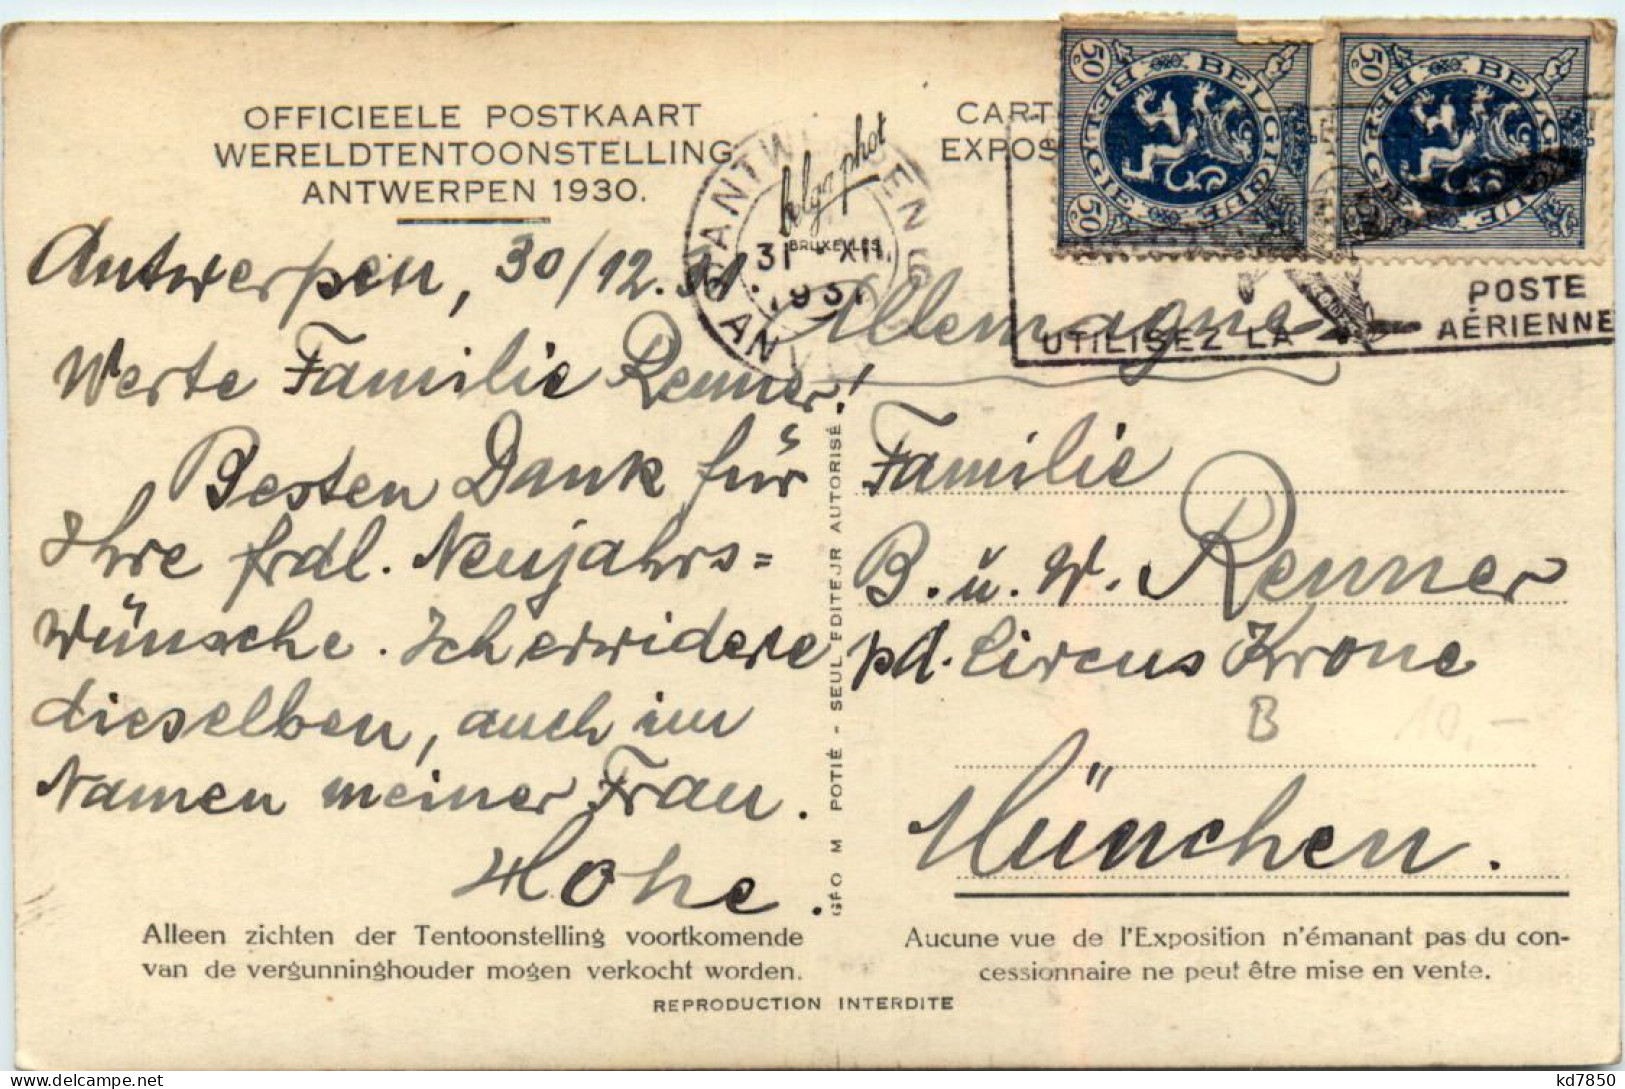 OFFICIEELE POSTKAART
WERELDTENTOONSTELLING
ANTWERPEN 1930.
CART
EXPOS
50c BELGIQUE BELGIË 50c
50c BELGIQUE BELGIË 50c
belga phot
BRUXELLES
ANTWERPEN
31 XII
1931
ANV
UTILISEZ LA
POSTE
AÉRIENNE
Antwerpen, 30/12.31.
Werte Familie Renner!
Besten Dank für
Ihre frdl. Neujahrs=
Wünsche. Ich erwidere
dieselben, auch im
Namen meiner Frau.
Hohe.
Allemagne
Familie
B. u. W. Renner
pd. Circus Krone
B 10,-
München.
GÉO M POTIÉ - SEUL EDITEUR AUTORISÉ.
Alleen zichten der Tentoonstelling voortkomende
van de vergunninghouder mogen verkocht worden.
Aucune vue de l'Exposition n'émanant pas du con-
cessionnaire ne peut être mise en vente.
REPRODUCTION INTERDITE
kd7850